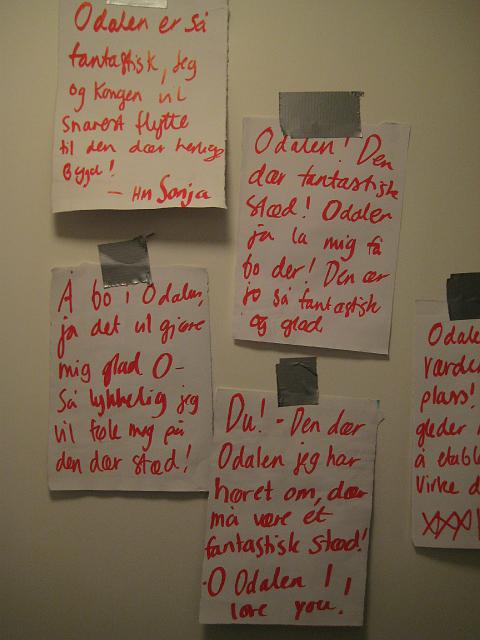 Odalen er så
fantastisk, jeg
og Kongen vil
snarest flytte
til den dær herlige
Bygd!
- HM Sonja
Odalen! Den
dær fantastiske
stæd! Odalen
ja la mig få
bo der! Den ær
jo så fantastisk
og glad
Å bo i Odalen,
ja det vil gjøre
mig glad O-
Så lykkelig jeg
vil føle meg på
den dær stæd!
Du! - Den dær
Odalen jeg har
høret om, dær
må være et
fantastisk stæd!
O Odalen I
love you!
Odale
værde
plass!
gleder
å etabl
virke d
XXX